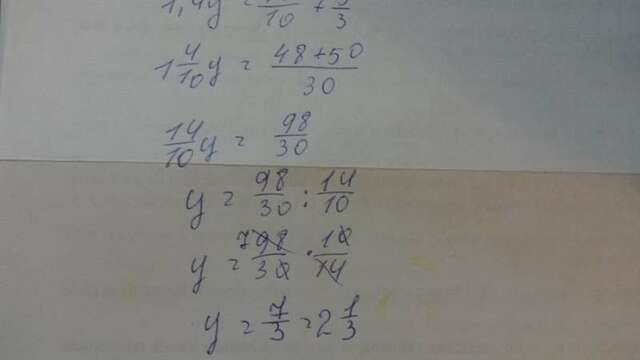 1,4y = 16/10 + 5/3
1 4/10 y = 48+50/30
14/10 y = 98/30
y = 98/30 : 14/10
y = 7 98/30 · 10/14
y = 7/3 = 2 1/3